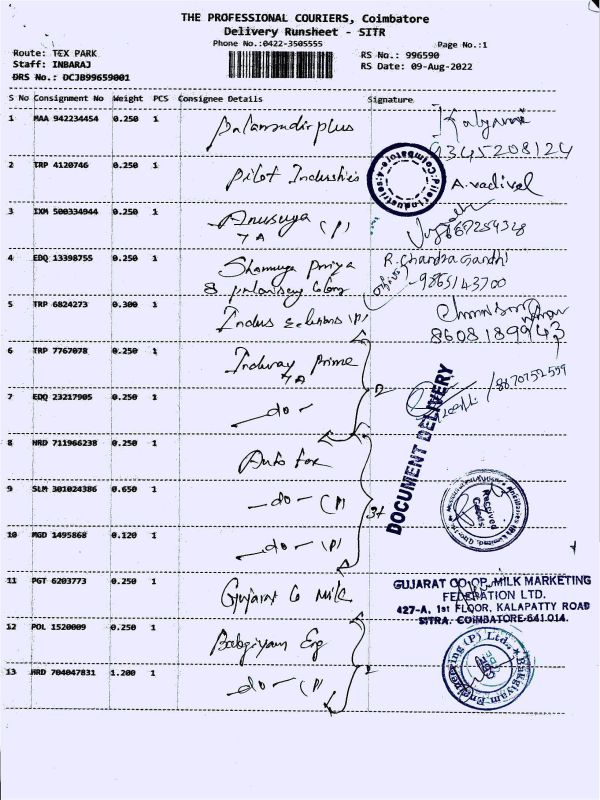 THE PROFESSIONAL COURIERS, Coimbatore
Delivery Runsheet - SITR
Phone No.:0422-3505555
Page No.:1
Route: TEX PARK
RS No.: 996590
Staff: INBARAJ
RS Date: 09-Aug-2022
DRS No.: DCJB99659001
S No Consignment No Weight PCS Consignee Details Signature
1 MAA 942234454 0.250 1
9345208124
2 TRP 4120746 0.250 1 Pilot Industries A. Vadivel
Pilot Industries Coimbatore
3 IXM 500334944 0.250 1 Anusuya (P)
4 EDQ 13398755 0.250 1 Shamuga Priya R. Chandra Gandhi
8 9865143700
5 TRP 6824273 0.300 1 Indus Solutions (P)
8608189943
6 TRP 7767078 0.250 1 Indway Prime
2
7 EDQ 23217905 0.250 1 -do-
/8870752559
DOCUMENT DELIVERY
8 HRD 711966238 0.250 1 Auto fox
9 SLM 301024386 0.650 1 -do- (P)
Received Goods
10 MGD 1495868 0.120 1 -do- (P)
11 PGT 6203773 0.250 1 Gujarat Co Milk
GUJARAT CO-OP. MILK MARKETING
FEDERATION LTD.
427-A, 1st FLOOR, KALAPATTY ROAD
SITRA, COIMBATORE-641 014.
12 POL 1520009 0.250 1 Bakgiyam Eng
13 HRD 704047831 1.200 1 -do- (P)
Bakgiyam Engineering (P) Ltd.,